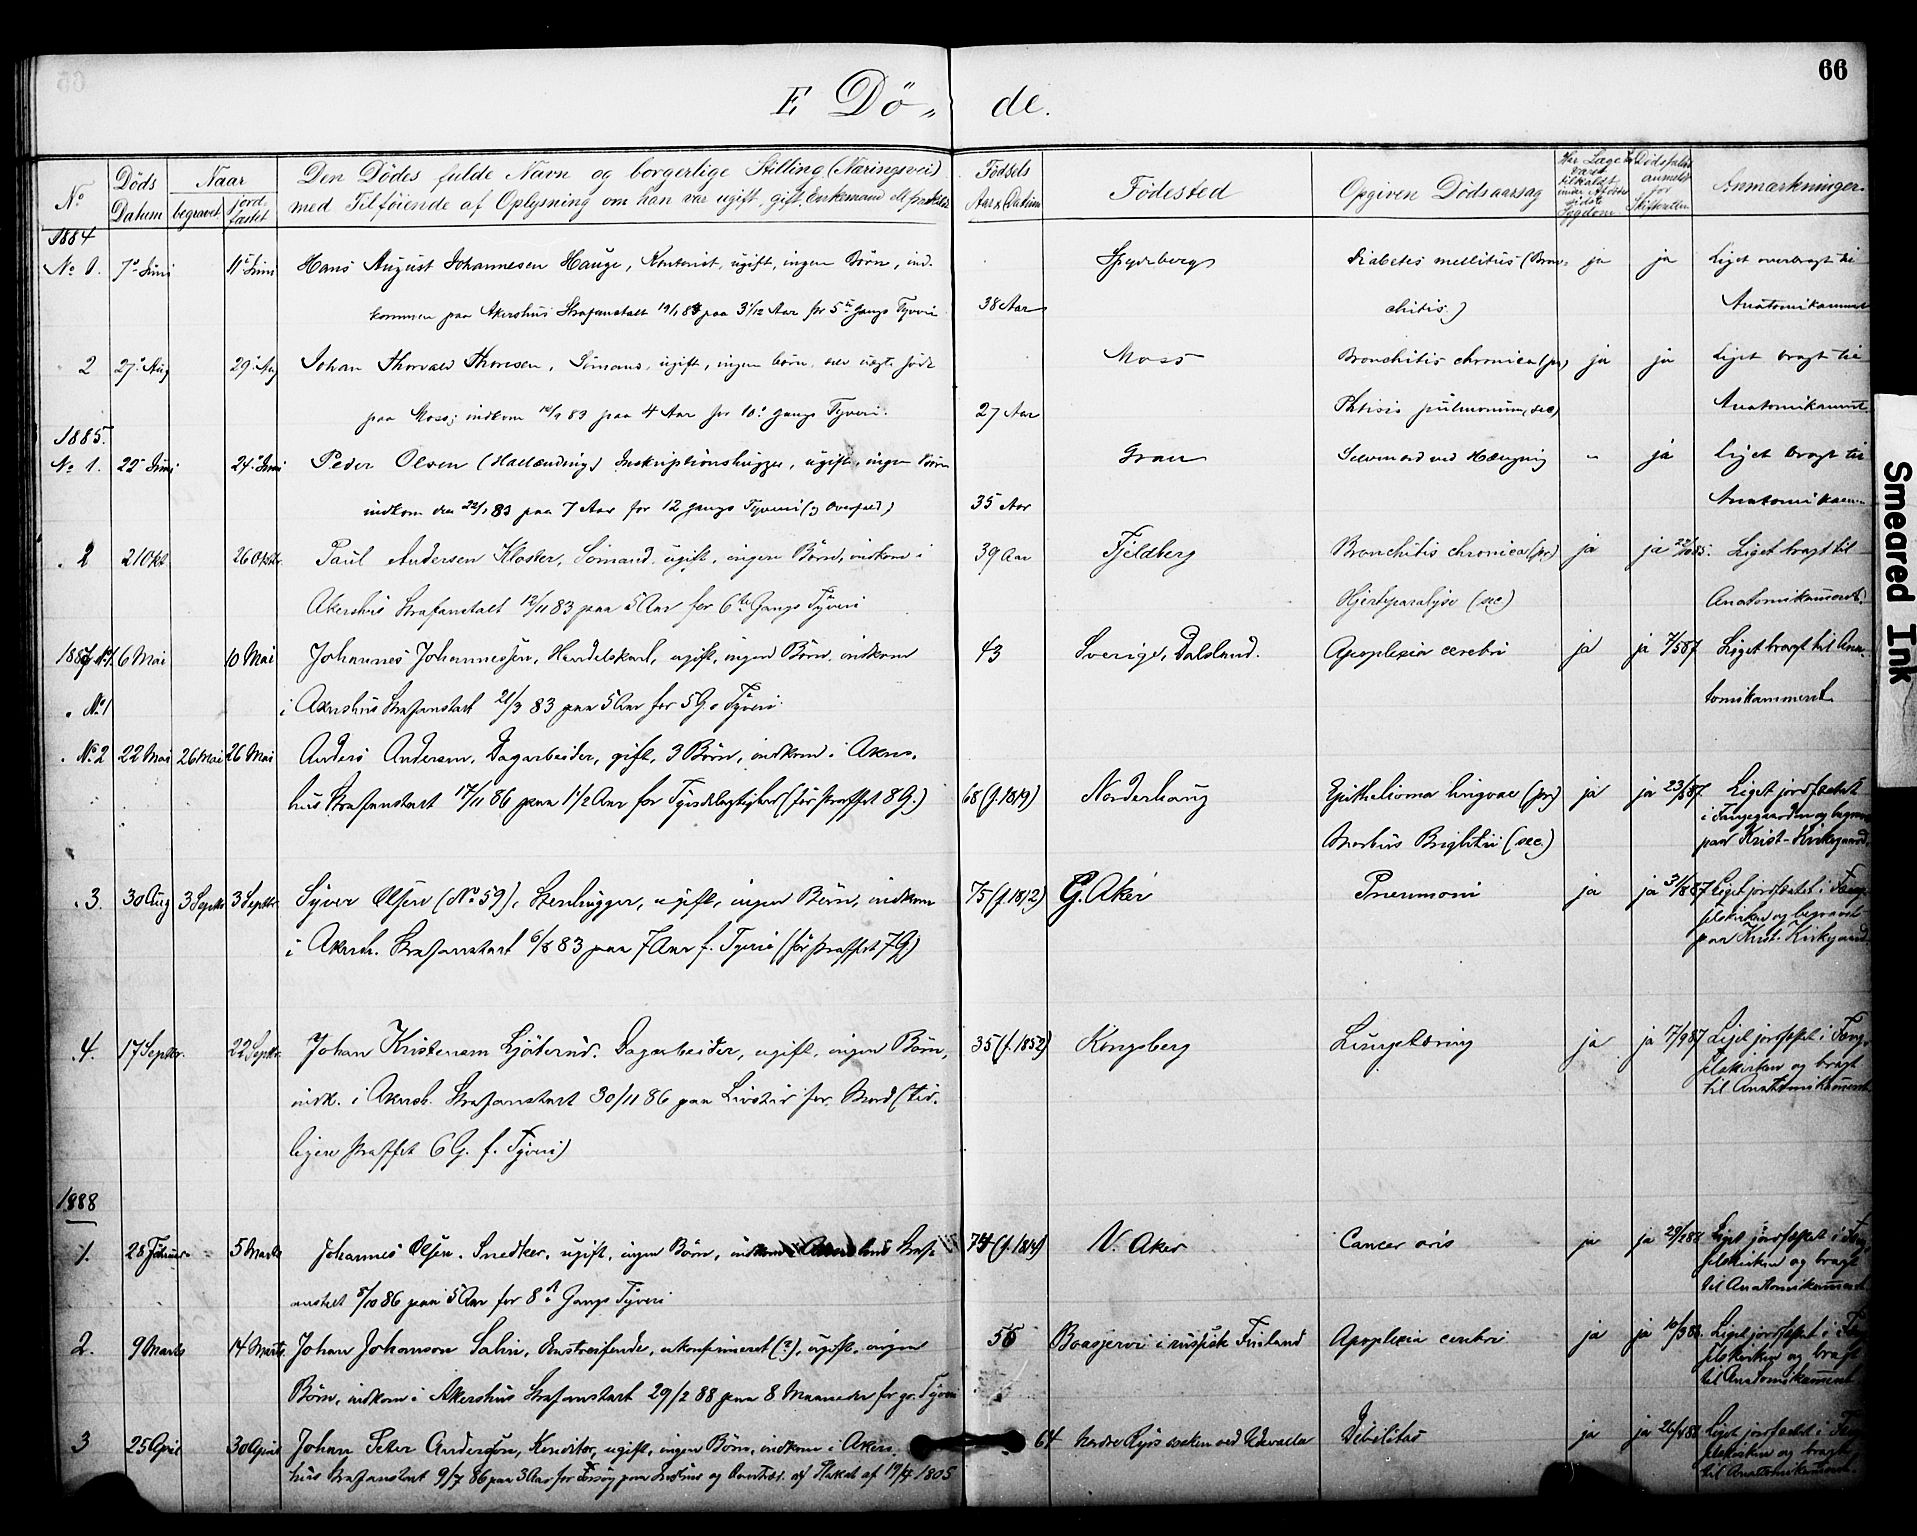 66
E Dö„ de.
No
Döds Datum
Naar
begravet
jord-fæstet
Den Dödes fulde Navn og borgerlige Stilling (Næringsvei)
med Tilföiende af Oplysning om han var ugift, gift, Enkemand ell. fraskilt
Födsels Aar & Datum
Födested
Opgiven Dödsaarsag
Anmærkninger
1884
No 1. 7de Juni 11te Juni Hans August Johannesen Hauge, Kontorist, ugift, ingen Börn, ind- Spydeberg Diabetes mellitus (Bron- ja ja Liget overbragt til
kommen paa Akershus Strafanstalt 19/1 84 paa 3 1/12 Aar for 5te Gangs Tyveri 38 Aar chitis) Anatomikammeret
2 27de Aug 29de Aug Johan Thorvald Thoresen, Sömand, ugift, ingen börn, Moss Bronchitis chronica (pr) ja ja Liget bragt til
paa Moss; indkom 12/9 83 paa 4 Aar for 10de Gangs Tyveri. 27 Aar Phtisis pulmonum (sec) Anatomikammeret
1885.
No 1. 22de Juni 24de Juni Peder Olsen (Hallænding) Inskriptionshugger, ugift, ingen Börn Gran Selvmord ved Hængning - ja Liget bragt til
indkom den 22/1 83 paa 7 Aar for 12 Gangs Tyveri (og Overfald) 35 Aar Anatomikamm
2 21 Okt 26 Oktbr. Paul Andersen Kloster, Sömand, ugift, ingen Börn, indkom i 39 Aar Fjeldberg Bronchitis chronica (pr) ja ja 22/10 85. Liget bragt til
Akershus Strafanstalt 12/11 83 paa 5 Aar for 6te Gangs Tyveri Hjerteparalyse (sec) Anatomikammeret.
1887 No 1 6 Mai 10 Mai Johannes Johannessen, Handelskarl, ugift, ingen Börn, indkom 43 Sverige, Dalsland. Apoplexia cerebri ja ja 7/5 87 Liget bragt til Ana-
„ No 1 i Akershus Strafanstalt 21/3 83 paa 5 Aar for 5 G. Tyveri. tomikammeret
„ No 2 22 Mai 26 Mai 26 Mai Anders Andersen, Dagarbeider, gift, 3 Börn, indkom i Akers-
hus Strafanstalt 17/11 86 paa 1 1/2 Aar for Tyvsdelagtighed (för straffet 8 G.) 68 (f. 1819) Norderhaug Epithelioma lingvae (pr) ja ja 23/5 87. Liget jordfæstet
i Fangegaarden og begravet
Morbus Brightii (sec.) paa Krist. Kirkegaard.
„ 3. 30 Aug 3 Septbr 3 Septbr. Syver Olsen (No 59), Stenhugger, ugift, ingen Börn, indkom 75 (f. 1812) G. Aker Pneumoni ja ja 31/8 87 Liget jordfæstet i Fæng-
selskirken og begravet
i Akersh. Strafanstalt 6/6 83 paa 7 Aar f. Tyveri (för straffet 7 G) paa Krist. Kirkegaard.
„ 4. 17 Septbr. 22 Septbr. Johan Kristensen Ljöterud, Dagarbeider, ugift, ingen Börn, 35 (f. 1852) Kongsberg Lungetæring ja ja 17/9 87 Liget jordfæstet i Fæng-
selskirken og bragt
indk. i Akersh. Strafanstalt 30/11 86 paa Livstid for Mord (tid- til Anatomikammeret
ligere straffet 6 G. f. Tyveri)
1888
1. 28 Februar 5 Marts Johannes Olsen, Snedker, ugift, ingen Börn, indkom i Akershus Straf- 74 V. Aker Cancer oris ja ja 29/2 88 Liget jordfæstet i Fæng-
selskirken og bragt
anstalt 5/10 86 paa 5 Aar for 8de Gangs Tyveri til Anatomikammeret.
2. 9 Marts 14 Marts. Johan Johanson Salin, Omstreifende, ukonfirmeret (?), ugift, ingen 55 Boasjervi i russisk Finland Apoplexia cerebri ja ja 10/3 88. Liget jordfæstet i Fæng-
selskirken og bragt
Börn, indkom i Akershus Strafanstalt 29/2 88 paa 8 Maaneder for gr. Tyveri til Anatomikammeret
3 25 April 30 April Johan Peter Anderson, Konditor, ugift, ingen Börn, indkom i Akers- 64 ved Udevalla Debilitas ja ja 26/4 88 Liget jordfæstet i Fæng-
selskirken og bragt
hus Strafanstalt 9/7 86 paa 3 Aar for af Plakat af 1805 til Anatomikammeret.
Smeared Ink